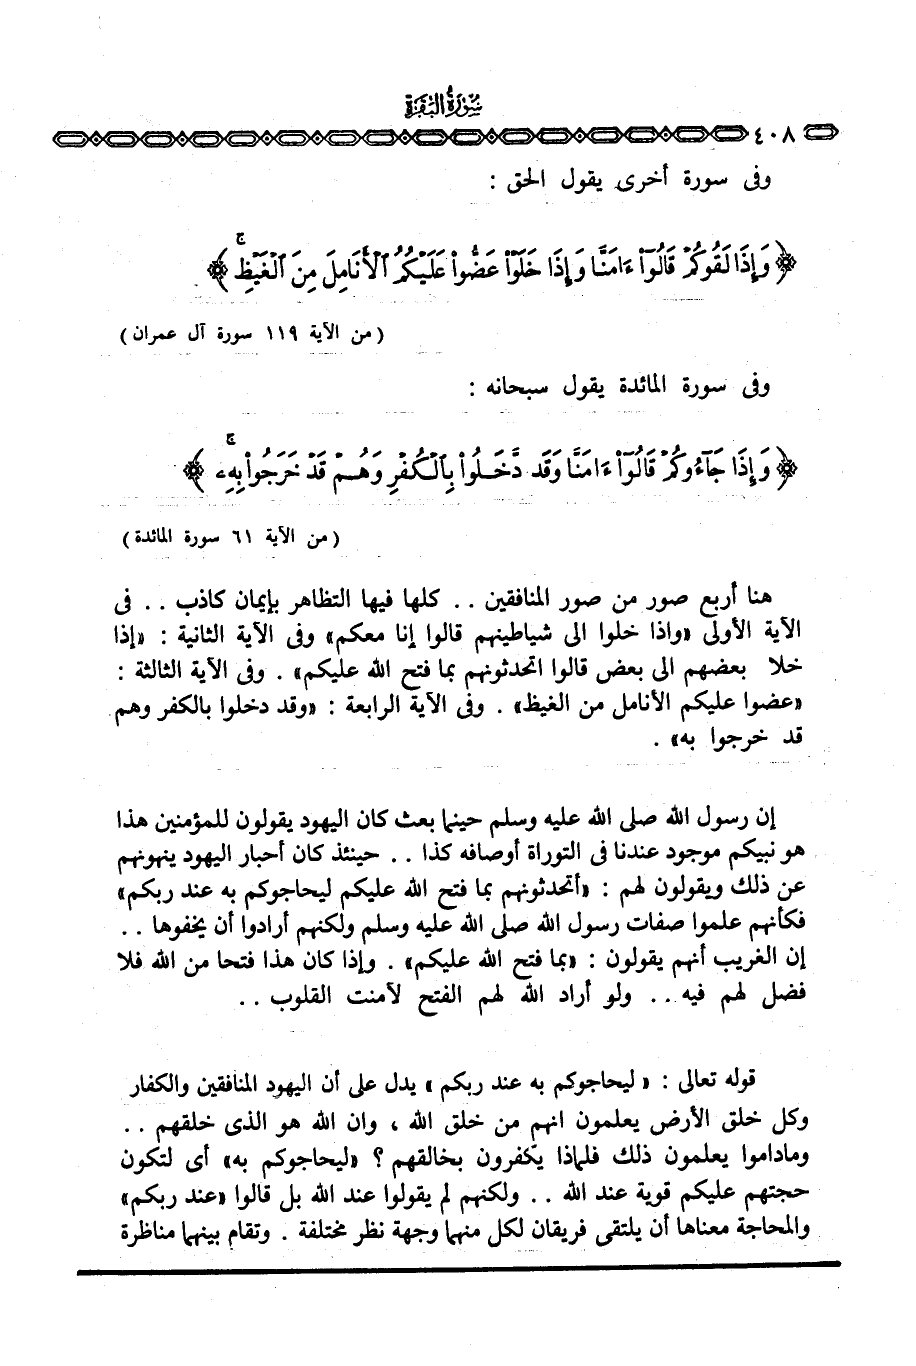 سورة البقرة
٤٠٨
وفى سورة أخرى يقول الحق :
﴿ وَإِذَا لَقُوكُمْ قَالُوٓا۟ ءَامَنَّا وَإِذَا خَلَوْا۟ عَضُّوا۟ عَلَيْكُمُ ٱلْأَنَامِلَ مِنَ ٱلْغَيْظِ ۚ ﴾
( من الآية ١١٩ سورة آل عمران )
وفى سورة المائدة يقول سبحانه :
﴿ وَإِذَا جَآءُوكُمْ قَالُوٓا۟ ءَامَنَّا وَقَد دَّخَلُوا۟ بِٱلْكُفْرِ وَهُمْ قَدْ خَرَجُوا۟ بِهِۦ ۚ ﴾
( من الآية ٦١ سورة المائدة )
هنا أربع صور من صور المنافقين .. كلها فيها التظاهر بإيمان كاذب .. فى
الآية الأولى «واذا خلوا الى شياطينهم قالوا إنا معكم» وفى الآية الثانية : «إذا
خلا بعضهم الى بعض قالوا اتحدثونهم بما فتح الله عليكم» . وفى الآية الثالثة :
«عضوا عليكم الأنامل من الغيظ» . وفى الآية الرابعة : «وقد دخلوا بالكفر وهم
قد خرجوا به» .
إن رسول الله صلى الله عليه وسلم حينما بعث كان اليهود يقولون للمؤمنين هذا
هو نبيكم موجود عندنا فى التوراة أوصافه كذا .. حينئذ كان أحبار اليهود ينهونهم
عن ذلك ويقولون لهم : «أتحدثونهم بما فتح الله عليكم ليحاجوكم به عند ربكم»
فكأنهم علموا صفات رسول الله صلى الله عليه وسلم ولكنهم أرادوا أن يخفوها ..
إن الغريب أنهم يقولون : «بما فتح الله عليكم» . وإذا كان هذا فتحا من الله فلا
فضل لهم فيه .. ولو أراد الله لهم الفتح لآمنت القلوب ..
قوله تعالى : « ليحاجوكم به عند ربكم » يدل على أن اليهود المنافقين والكفار
وكل خلق الأرض يعلمون انهم من خلق الله ، وان الله هو الذى خلقهم ..
وماداموا يعلمون ذلك فلماذا يكفرون بخالقهم ؟ «ليحاجوكم به» أى لتكون
حجتهم عليكم قوية عند الله .. ولكنهم لم يقولوا عند الله بل قالوا «عند ربكم»
والمحاجة معناها أن يلتقى فريقان لكل منهما وجهة نظر مختلفة . وتقام بينهما مناظرة